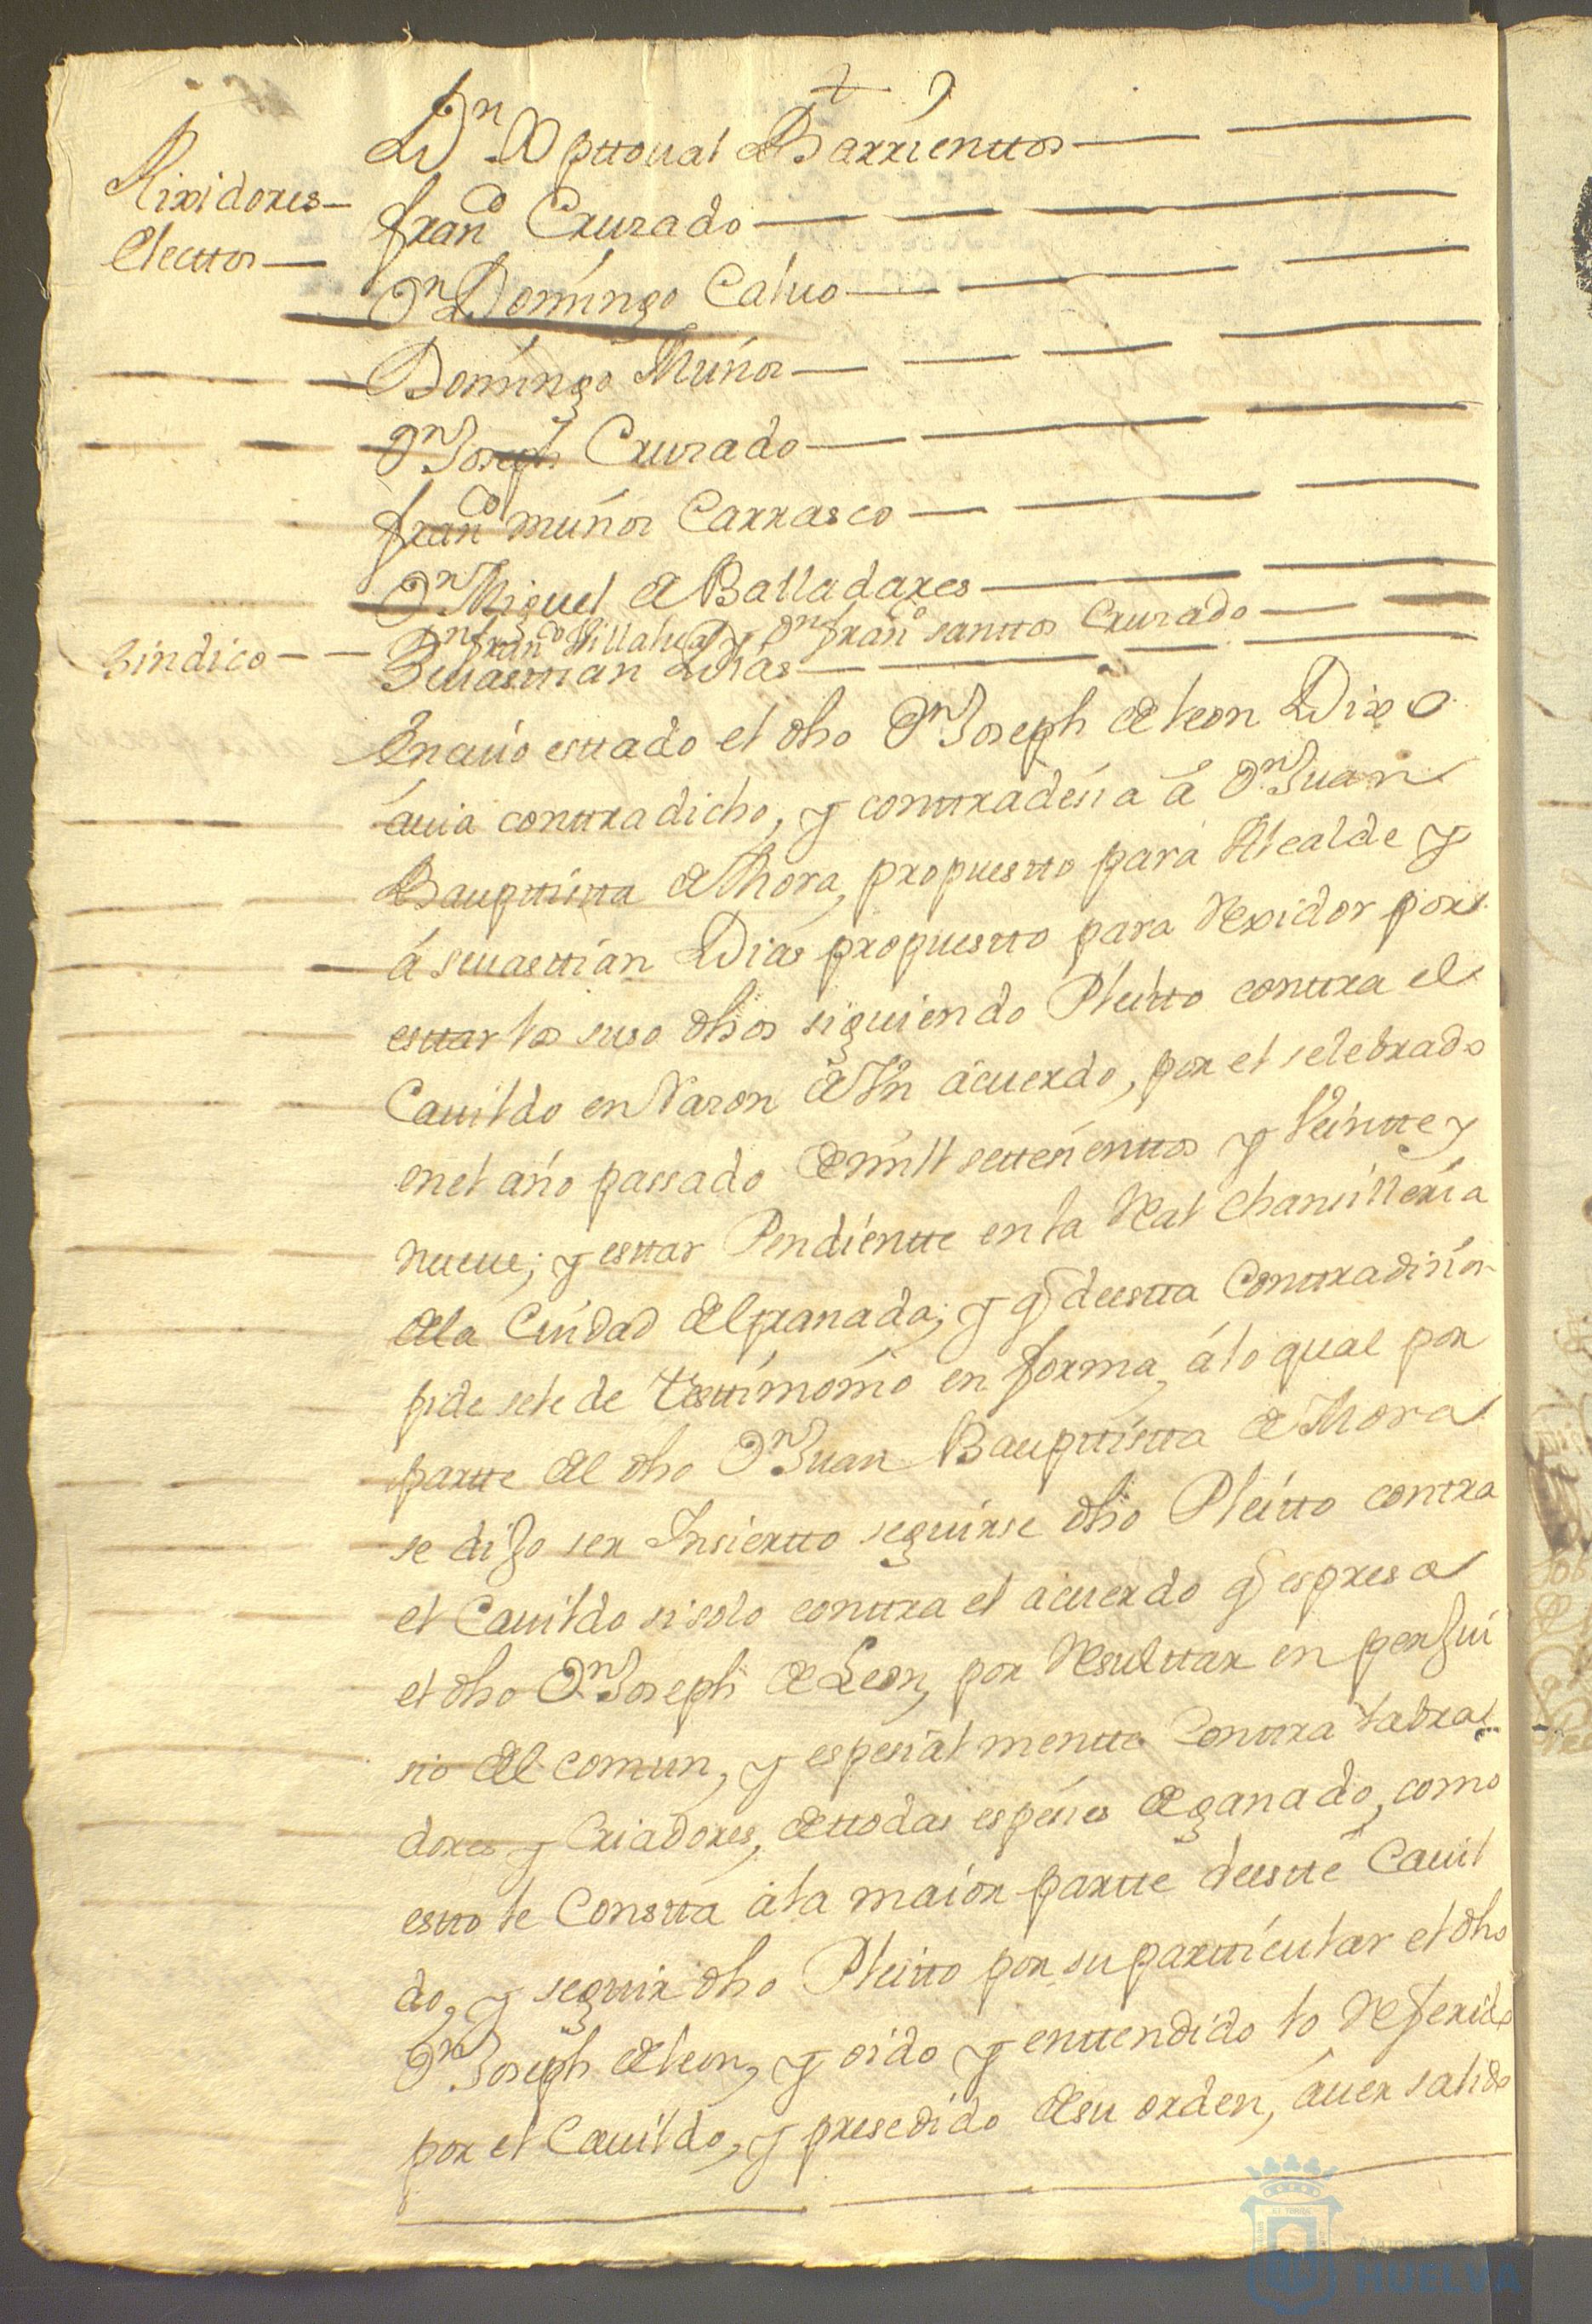 Dn Xpttoual Barrienttos
Rixidores
franco Cruzado
Electtos
Dn Domingo Caluo
Domingo Muños
Dn Joseph Cruzado
franco muños Carrasco
Dn Miguel de Balladares
Dn franco Villalua y Dn franco santtos Cruzado
Sindico
Seuasttian Dias
En cuio esttado el dho Dn Joseph de leon Dixo
áuia conttradicho, y conttradesia á Dn Juan
Baupttistta de Mora, propuestto para Alcalde y
á seuasttian Dias propuestto para Rexidor por
esttar los suso dhos siguiendo Pleitto conttra el
Cauildo en Razon de Vn ácuerdo, por el selebrado
en el año passado de mill settesienttos y Veintte y
nueue; y esttar Pendientte en la Real Chansilleria
de la Ciudad de granada; y q deestta Conttradision
pide se le de Testtimonio en forma, á lo qual por
partte del dho Dn Juan Baupttistta de Mora
se dijo ser Insiertto seguirse dho Pleitto contra
el Cauildo si solo conttra el ácuerdo q espresa
el dho Dn Joseph de Leon, por Resulttar en perjui
sio del comun, y espesialmentte Conttra labra
dores y Criadores, de ttodas espesies de ganado, como
estto le Constta á la maior partte deestte Cauil
do, y seguir dho Pleitto por su partticular el dho
Dn Joseph de leon, y oido y enttendido lo Referido
por el Cauildo, y presedido de su orden, áuer salido
AYUNTAMIENTO DE
HUELVA